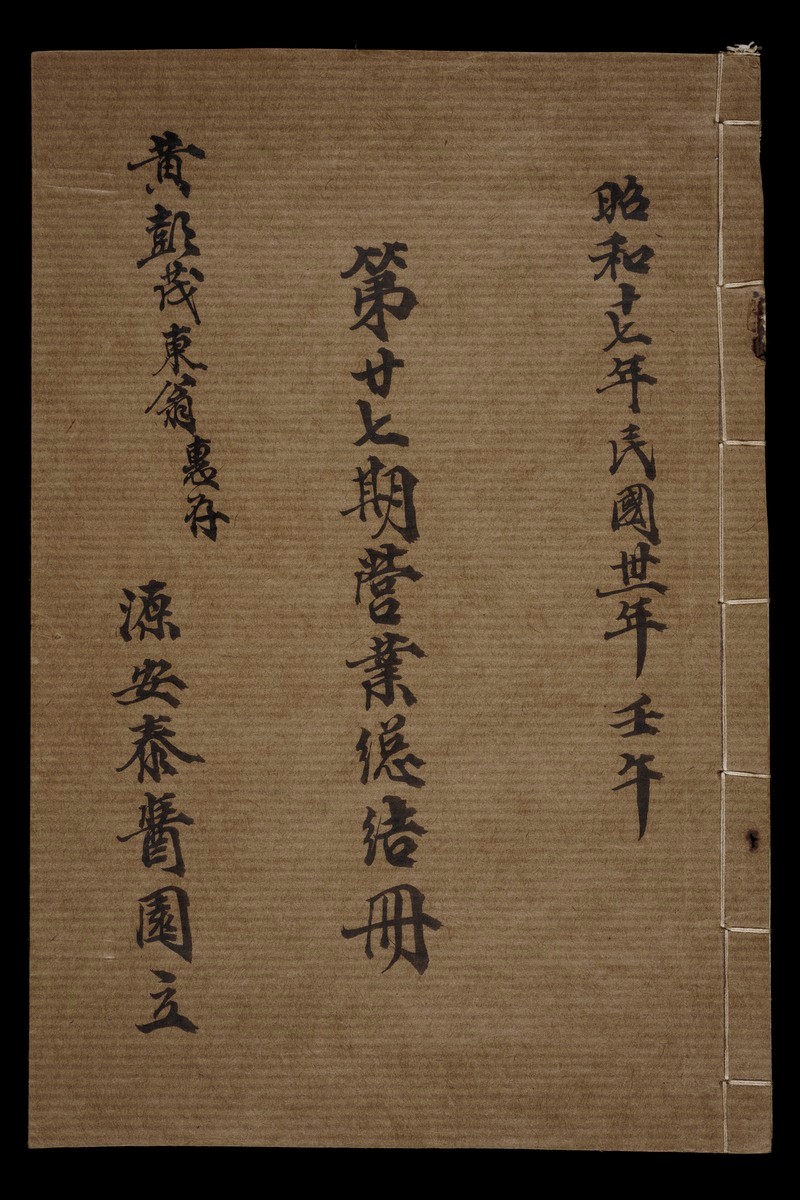 昭和十七年民國卅一年壬午
第廿七期營業總結冊
黃彭茂東翁惠存
源安泰醬園立